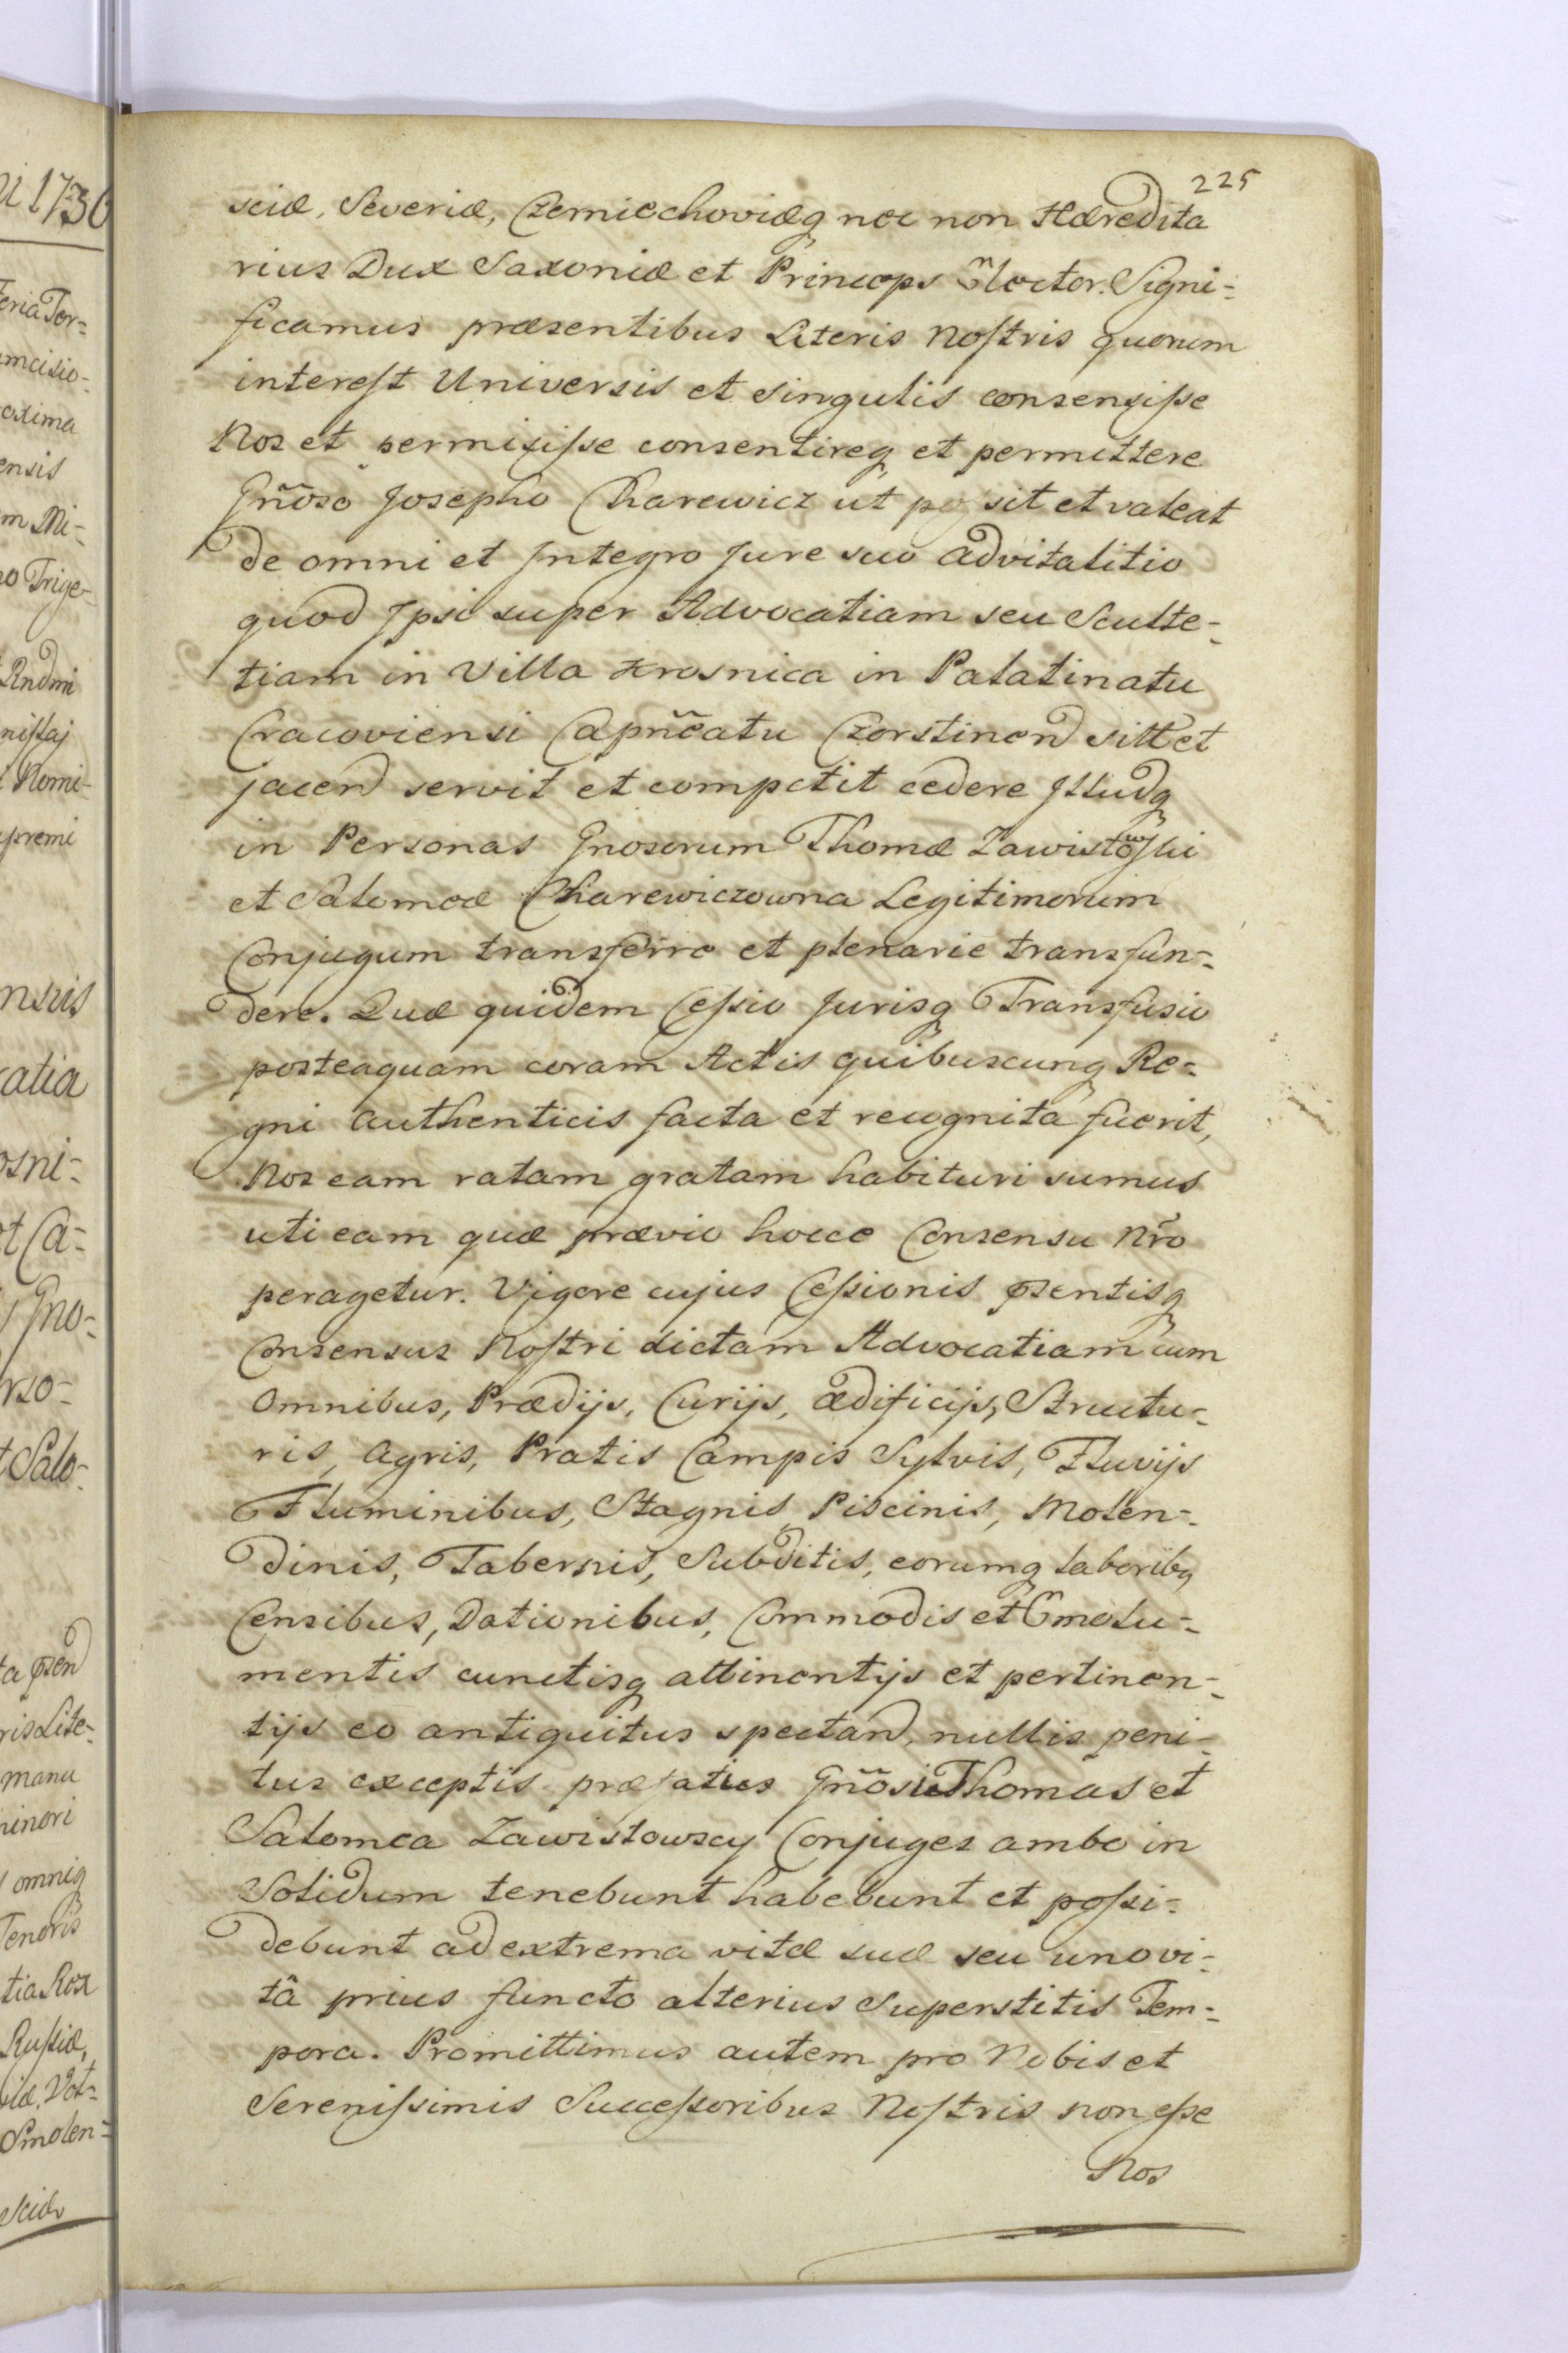 225
sciæ, Severiæ, Czerniechoviæq nec non Hæredita
rius Dux Saxoniæ et Princeps Elector. Signi=
ficamus præsentibus Literis Noſtris quorum
intereſt Universis et singulis consensiſse
Nos et permisiſse consentireq et permittere
Gñoso Josepho Charewicz ut poſsit et valeat
de omni et Integro Jure suo advitalitio
quod Ipsi super Advocatiam seu Sculte=
tiam in Villa Krosnica in Palatinatu
Cracoviensi Capñeatu Czorstinen sitt et
jacen servit et competit cedere Illudq
in Personas Gnosorum Thomæ Zawistowſki
et Salomeæ Charewiczowna Legitimorum
Conjugum transferre et plenarie transfun=
dere. Quæ quidem Ceſsio Jurisq Transfusio
posteaquam coram Actis quibuscunq Re=
gni authenticis facta et recognita fuerit,
Nos eam ratam gratam habituri sumus
uti eam quæ prævio hocce Consensu Nr̃o
peragetur. Vigore cujus Ceſsionis pſentisq
Consensus Noſtri dictam Advocatiam cum
omnibus, Prædijs, Curijs, ædificijs, Structu=
ris, agris, Pratis Campis Sylvis, Fluvijs
Fluminibus, Stagnis, Piscinis, Molen=
dinis, Tabernis, Subditis, eorumq laboribq
Censibus, Dationibus, Commodis et Emolu=
mentis cunctisq attinentijs et pertinen=
tijs eo antiquitus spectan, nullis peni=
tus exceptis præfatus Gñosi Thomas et
Salomea Zawistowscy Conjuges ambo in
Solidum tenebunt habebunt et poſsi=
debunt ad extrema vitæ suæ seu uno vi=
tâ prius functo alterius Superstitis Tem=
pora. Promittimus autem pro Nobis et
Sereniſsimis Succeſsoribus Noſtris non eſse
Nos
1730
Mi=
Trige=
Rndmi
Nomi=
premi
catia
t Ca=
Gno=
t Salo=
ris Lite=
manu
omniq
Tenoris
tia Rex
Ruſsiæ,
Smolen=